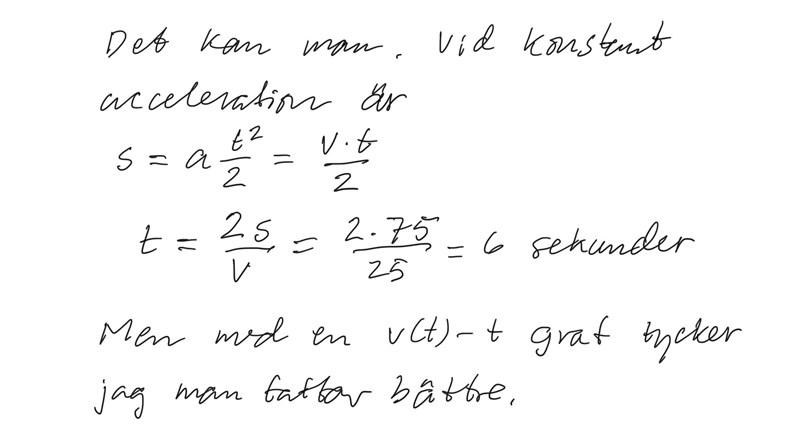 Det kan man. Vid konstant
acceleration är
s = a t²/2 = v·t/2
t = 2s/v = 2·75/25 = 6 sekunder
Men med en v(t)-t graf tycker
jag man fattar bättre.